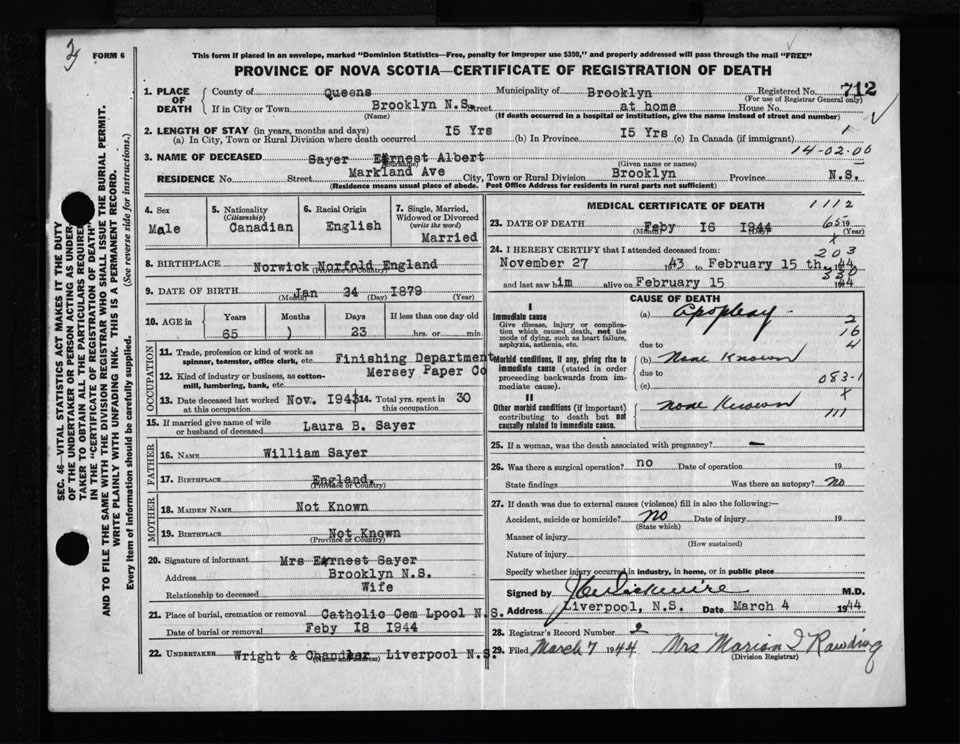 FORM 6
This form if placed in an envelope, marked "Dominion Statistics—Free, penalty for improper use $300," and properly addressed will pass through the mail "FREE"
PROVINCE OF NOVA SCOTIA—CERTIFICATE OF REGISTRATION OF DEATH
SEC. 46—VITAL STATISTICS ACT MAKES IT THE DUTY
OF THE UNDERTAKER OR PERSON ACTING AS UNDER-
TAKER TO OBTAIN ALL THE PARTICULARS REQUIRED
IN THE "CERTIFICATE OF REGISTRATION OF DEATH"
AND TO FILE THE SAME WITH THE DIVISION REGISTRAR WHO SHALL ISSUE THE BURIAL PERMIT.
WRITE PLAINLY WITH UNFADING INK. THIS IS A PERMANENT RECORD.
Every item of information should be carefully supplied. (See reverse side for instructions.)
1. PLACE OF DEATH County of Queens Municipality of Brooklyn Registered No. 712
(For use of Registrar General only)
If in City or Town Brooklyn N.S. Street at home House No.
(Name) (If death occurred in a hospital or institution, give the name instead of street and number)
2. LENGTH OF STAY (in years, months and days)
(a) In City, Town or Rural Division where death occurred 15 Yrs (b) In Province 15 Yrs (c) In Canada (if immigrant)
14-02-00
3. NAME OF DECEASED Sayer Ernest Albert
(Surname) (Given name or names)
RESIDENCE No. Street Markland Ave City, Town or Rural Division Brooklyn Province N.S.
(Residence means usual place of abode. Post Office Address for residents in rural parts not sufficient)
4. Sex Male
5. Nationality (Citizenship) Canadian
6. Racial Origin English
7. Single, Married, Widowed or Divorced (write the word) Married
8. BIRTHPLACE Norwick Norfold England
(Province or Country)
9. DATE OF BIRTH Jan 24 1879
(Month) (Day) (Year)
10. AGE in Years 65 Months ) Days 23 If less than one day old hrs. or min.
OCCUPATION
11. Trade, profession or kind of work as spinner, teamster, office clerk, etc. Finishing Department
12. Kind of industry or business, as cotton-mill, lumbering, bank, etc. Mersey Paper Co
13. Date deceased last worked at this occupation Nov. 1943 14. Total yrs. spent in this occupation 30
15. If married give name of wife or husband of deceased Laura B. Sayer
FATHER
16. NAME William Sayer
17. BIRTHPLACE England.
(Province or Country)
MOTHER
18. MAIDEN NAME Not Known
19. BIRTHPLACE Not Known
(Province or Country)
20. Signature of informant Mrs Ernest Sayer
Address Brooklyn N.S.
Relationship to deceased Wife
21. Place of burial, cremation or removal Catholic Cem Lpool N.S.
Date of burial or removal Feby 18 1944
22. UNDERTAKER Wright & Chandler Liverpool N.S.
(Name and address)
MEDICAL CERTIFICATE OF DEATH 1112
23. DATE OF DEATH Feby 16 1944
(Month) (Day) (Year)
65
24. I HEREBY CERTIFY that I attended deceased from:
203
November 27 1943 to February 15 th. 1944
and last saw him alive on February 15 1944
CAUSE OF DEATH
I
Immediate cause
Give disease, injury or complication which caused death, not the mode of dying, such as heart failure, asphyxia, asthenia, etc.
(a) Apoplexy
2
16
4
due to
Morbid conditions, if any, giving rise to immediate cause (stated in order proceeding backwards from immediate cause).
(b) None Known
due to
(c)
083-1
II
Other morbid conditions (if important) contributing to death but not causally related to immediate cause.
None Known
111
25. If a woman, was the death associated with pregnancy? —
26. Was there a surgical operation? no Date of operation 19
State findings Was there an autopsy? no
27. If death was due to external causes (violence) fill in also the following:—
Accident, suicide or homicide? no Date of injury 19
(State which)
Manner of injury
(How sustained)
Nature of injury
Specify whether injury occurred in industry, in home, or in public place
Signed by M.D.
Address Liverpool, N.S. Date March 4 1944
28. Registrar's Record Number 2
29. Filed March 7 1944 Mrs Marion I Rawding
(Division Registrar)